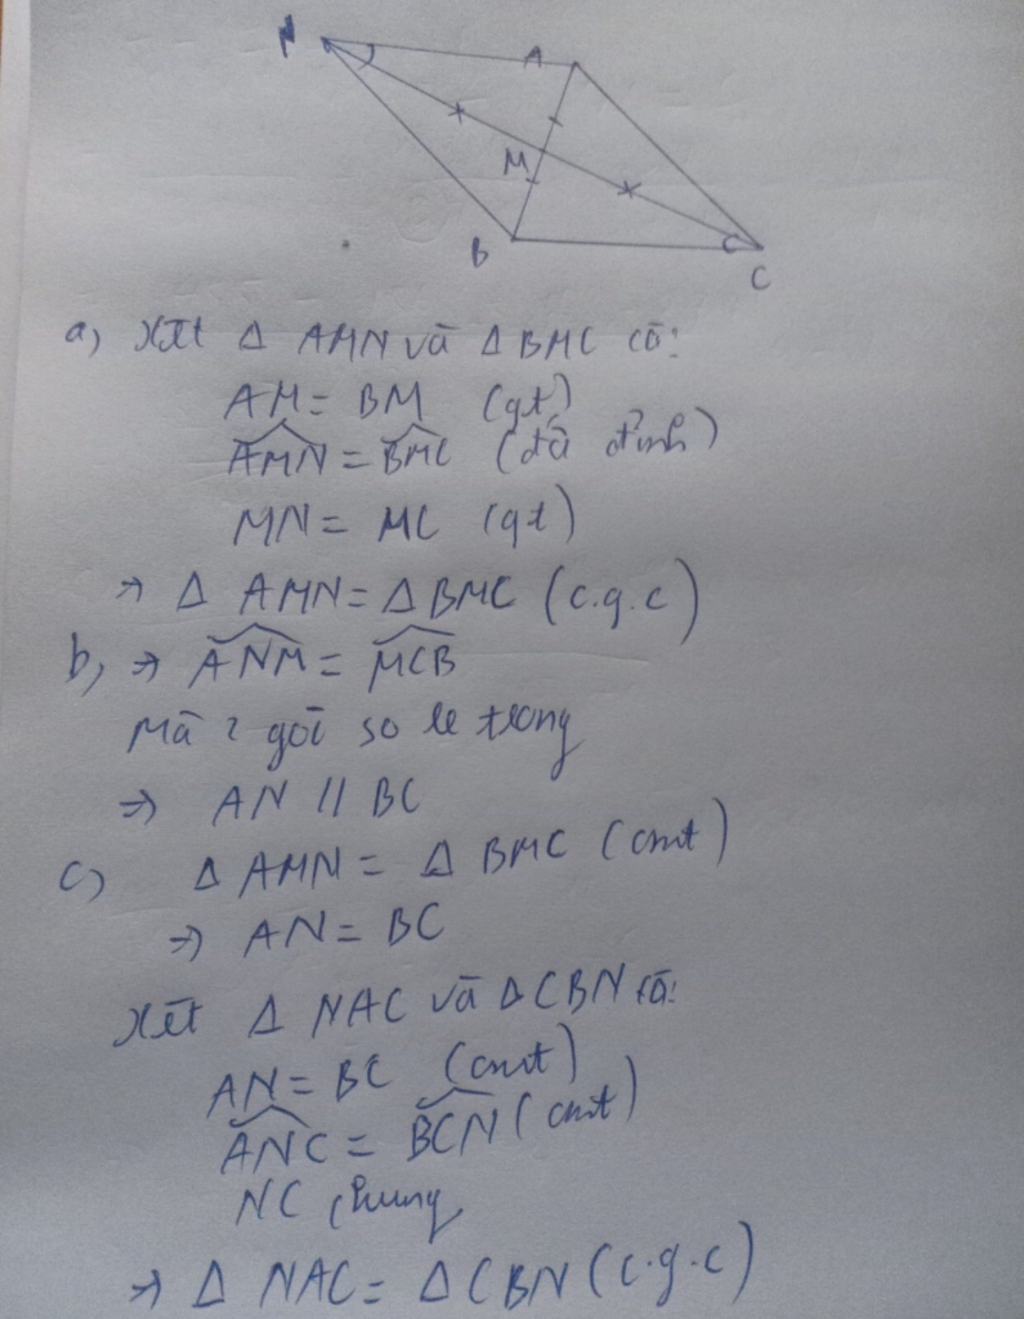 N
A
M
B
C
a) Xét Δ AMN và Δ BMC có:
AM = BM (gt)
AMN = BMC (đđ đỉnh)
MN = MC (gt)
→ Δ AMN = Δ BMC (c.g.c)
b, → ANM = MCB
Mà 2 gói so le trong
=> AN // BC
c) Δ AMN = Δ BMC (cmt)
=> AN = BC
Xét Δ NAC và Δ CBN có:
AN = BC (cmt)
ANC = BCN (cmt)
NC chung
→ Δ NAC = Δ CBN (c.g.c)